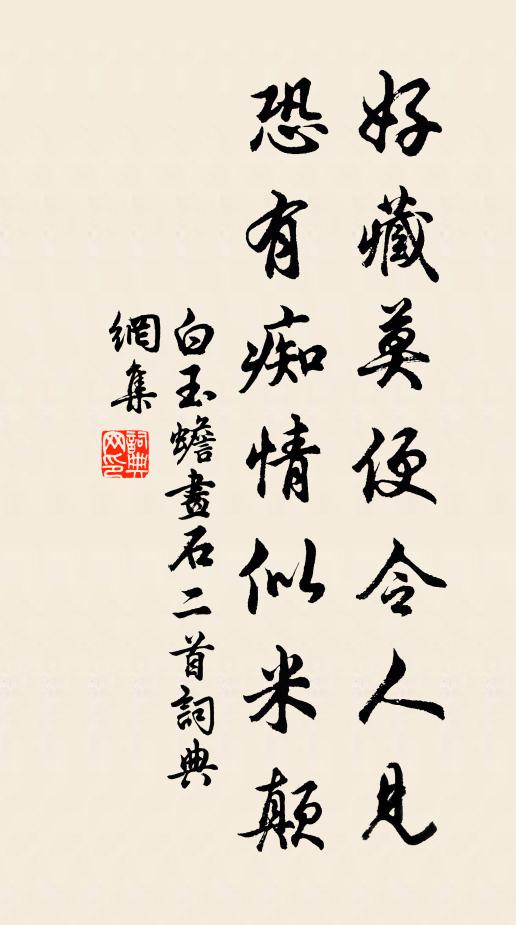 好藏莫便令人見
恐有痴情似米顛
白玉蟾畫石二首詞典
網集
詞典網印